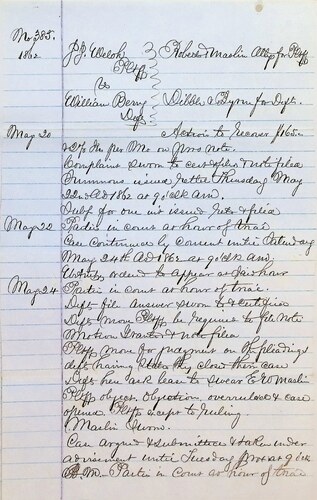 No 385.
1862
J.J. Welch
Pltff
vs
William Berry
Deft
Roberts & Maslin Attys for Pltff
Dibble & Byrne for Deft.
May 20 Action to Recover $165.00
& 2% Int per Mo on Pros Note.
Complaint Sworn to cert & filed & note filed
Summons issued retble Thursday May
22nd AD 1862 at 9 o'clk am.
Subp for one wit issued retd & filed
May 22 Parties in court at hour of trial
Case Continued by Consent until Saturday
May 24th AD 1862 at 9 o'clk am
Witness ordered to appear at said hour
May 24 Parties in court at hour of trial.
Deft files Answer sworn to & certified
Deft moves Pltff be required to file Note
Motion Granted & note filed
Pltffs move for judgment on the pleadings
deft having rested they close their case
Deft here ask leave to swear E.W. Maslin
Pltff object. Objection overruled & case
opened Pltff except to ruling.
Maslin Sworn.
Case argued & submitted & taken under
advisement until Tuesday next at 9 o'clk
A.M. Parties in Court at hour of trial